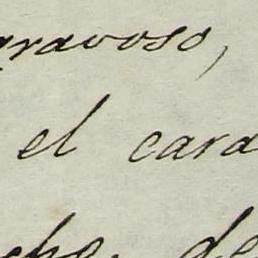 gravoso,
el cara
che de